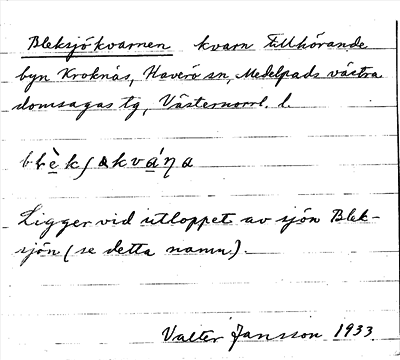 Bleksjökvarnen kvarn tillhörande
byn Kroknäs, Haverö sn, Medelpads västra
domsagas tg, Västernorrl. l
Ligger vid utloppet av sjön Blek-
sjön (se detta namn).
Valter Jansson 1933.